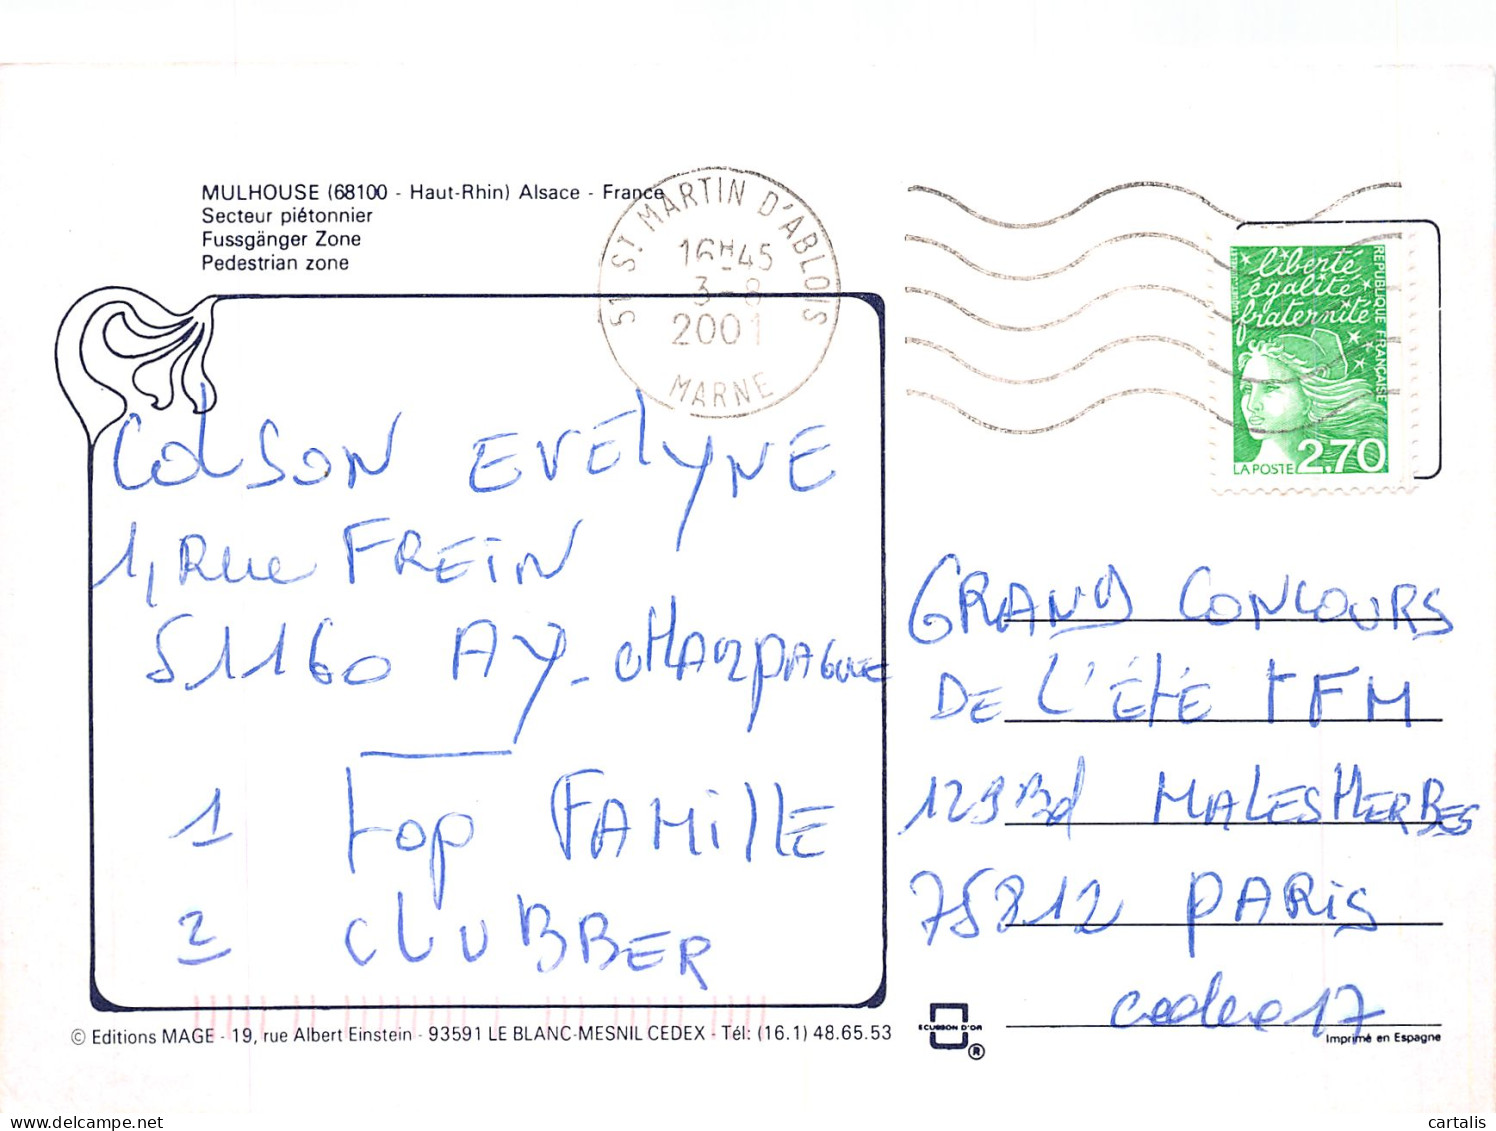 MULHOUSE (68100 - Haut-Rhin) Alsace - France
Secteur piétonnier
Fussgänger Zone
Pedestrian zone
51 ST MARTIN D'ABLOIS
16H45
3-8
2001
MARNE
liberté
égalité
fraternité
REPUBLIQUE FRANÇAISE
LA POSTE 2,70
COLSON EVELYNE
1, RUE FREIN
51160 AY-CHAMPAGNE
1 top FAMILLE
2 CLUBBER
GRAND CONCOURS
DE L'ÉTÉ TFM
129 Bd MALESHERBES
75812 PARIS
cedex 17
© Editions MAGE - 19, rue Albert Einstein - 93591 LE BLANC-MESNIL CEDEX - Tél: (16.1) 48.65.53
ECUSSON D'OR
®
Imprimé en Espagne
cartalis